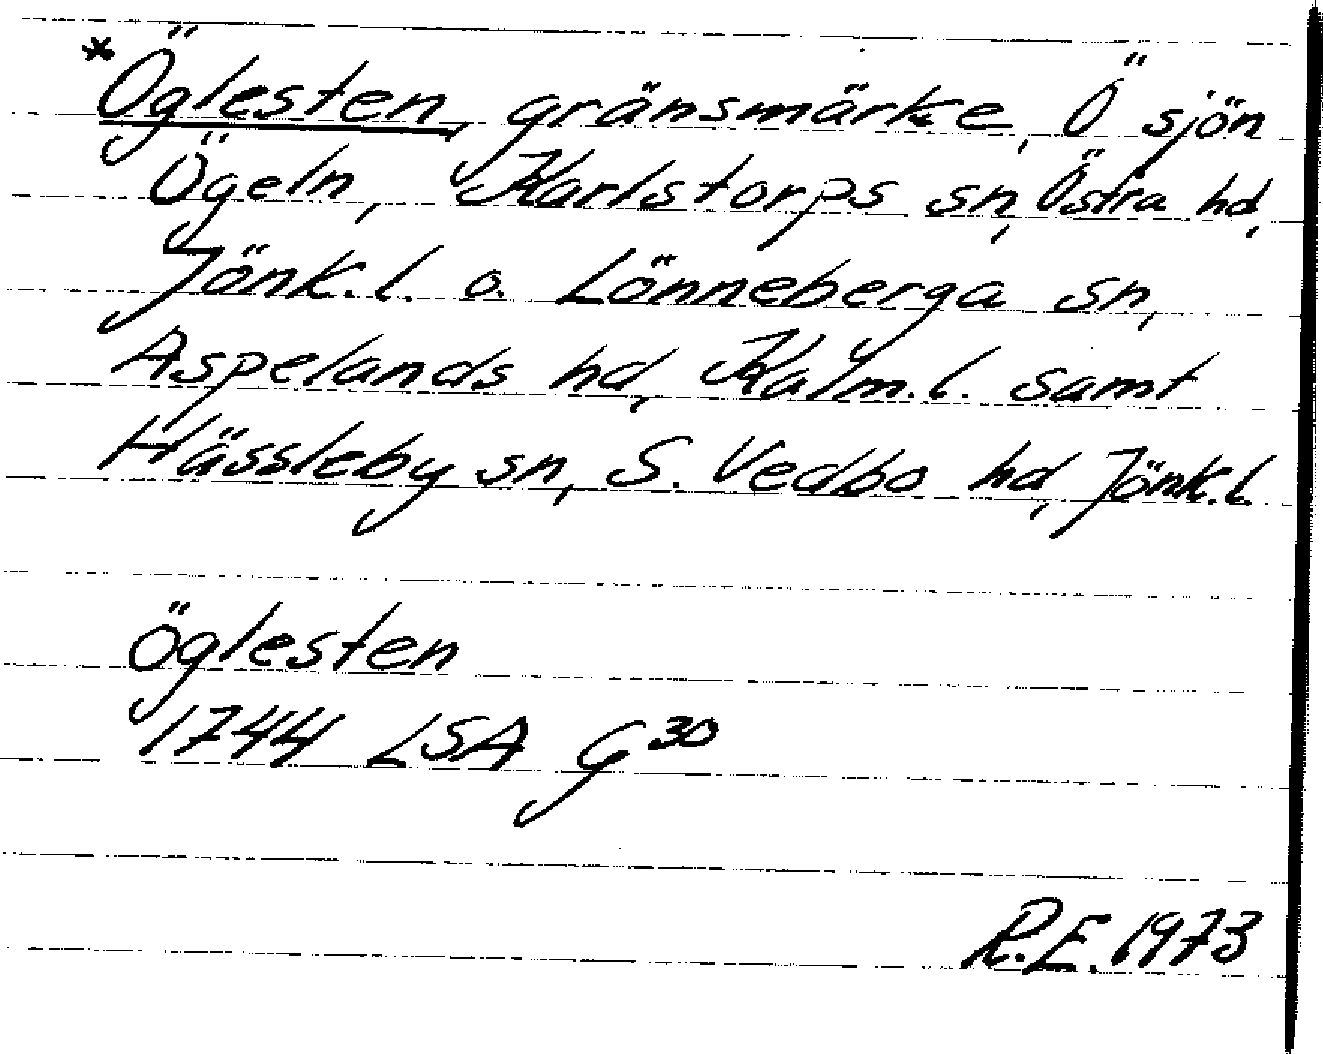 *Öglesten, gränsmärke, Ö sjön
Ögeln, Karlstorps sn, Östra hd,
Jönk.l. o. Lönneberga sn,
Aspelands hd, Kalm.l. samt
Hässleby sn, S. Vedbo hd, Jönk.l.
öglesten
1744 LSA G 30
R.E. 1973